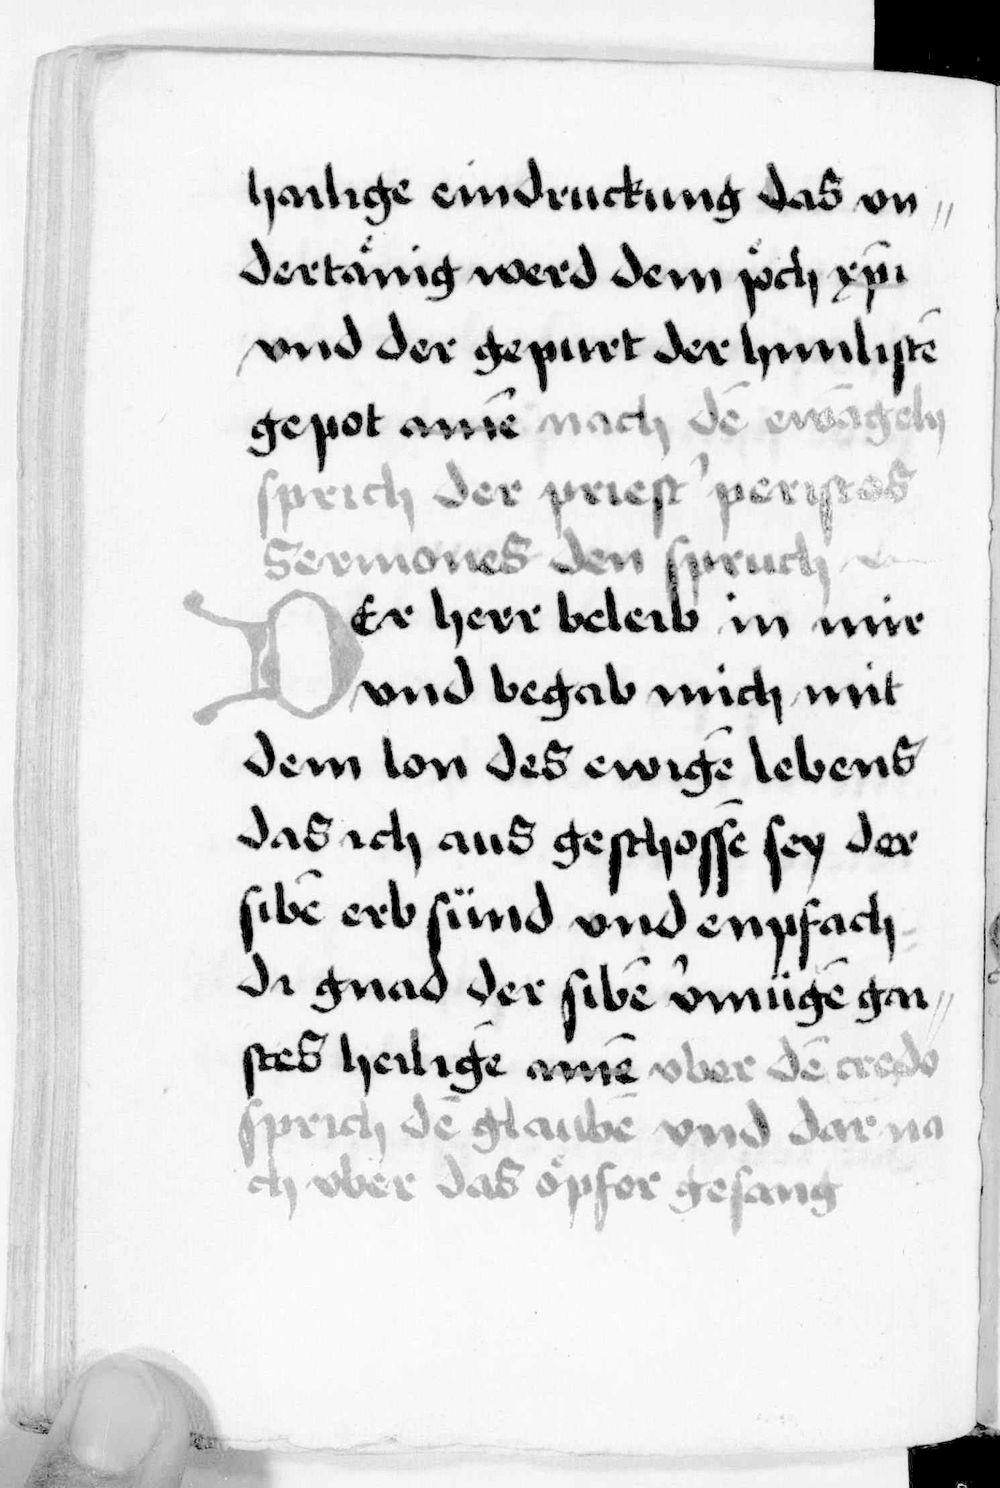 hailige eindruckung das vn〃
dertäͤnig werd dem poͤch xp̄i
vnd der gepurt der himlistē
gepot amē nach dē ewāgely
sprich der priestʾ peristes
Sermones den spruch
DEr herr beleib in mir
vnd begab mich mit
dem lon des ewigē lebens
das ich aus geschossē sey der
sibē erb sünd vnd enpfach
di gnad der sibē vʾmügē gai〃
stes heiligē amē vber dē credo
sprich dē glaubē vnd dar na
ch vber das oͤpfor gesang